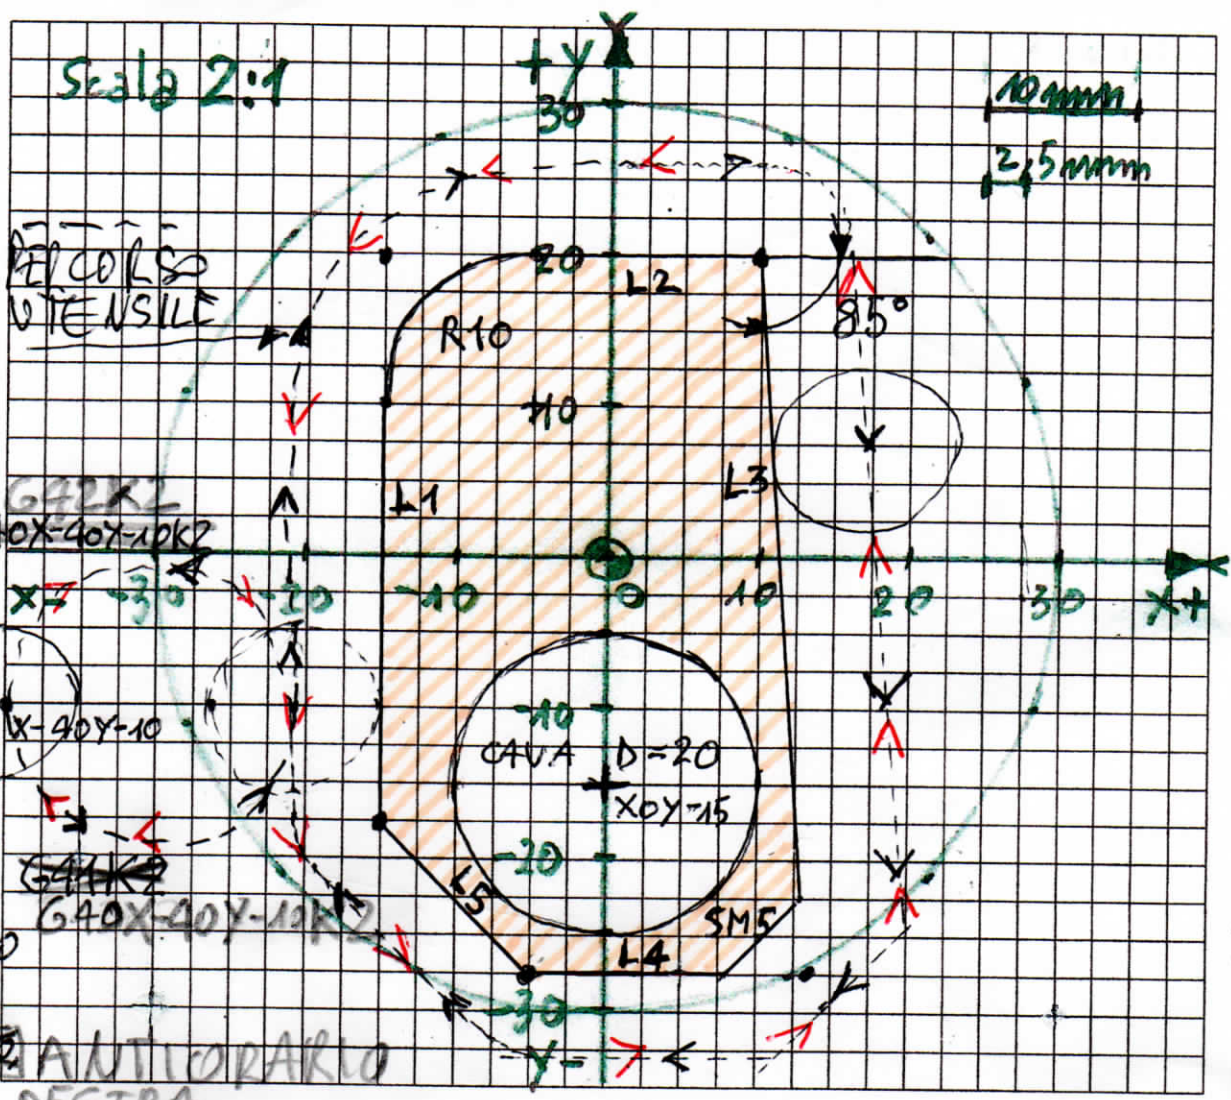 Y
+Y
Scala 2:1
30
10mm
2,5mm
PERCORSO
UTENSILE
20
L2
85°
R10
10
L1
L3
G42K2
0X-40Y-10K2
X-
-30
-20
-10
0
10
20
30
X+
X
X-40Y-10
-10
CAVA D=20
X0Y-15
-20
G41K2
G40X-40Y-10K2
L5
SM5
L4
-30
Y-
ANTIORARIO
DESTRA